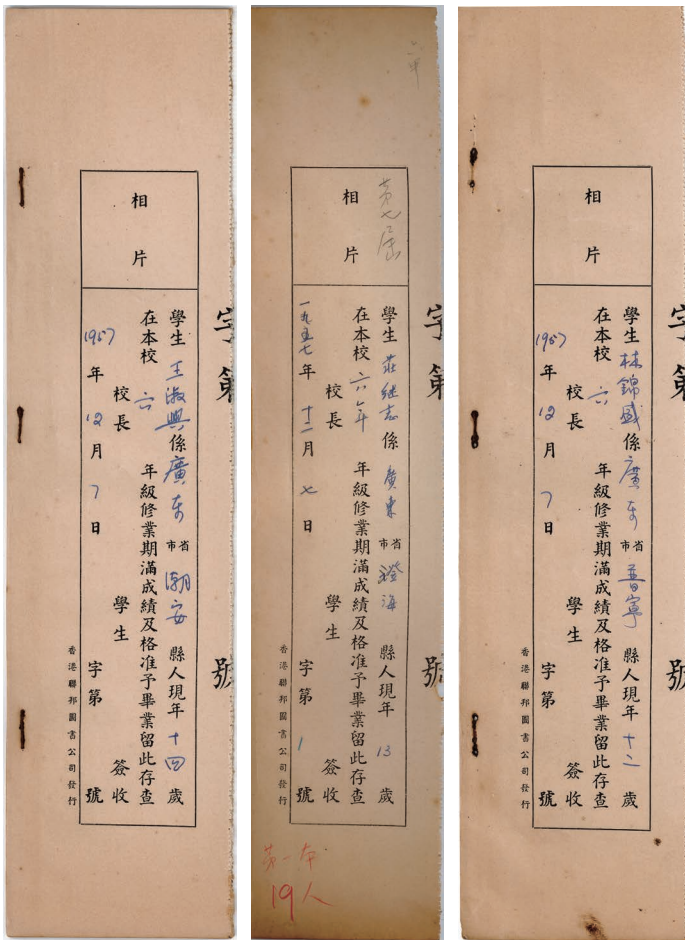 字第 號
相片
學生王淑興係廣东省市潮安縣人現年十四歲
在本校六年級修業期滿成績及格准予畢業留此存查
校長 學生 簽收
1957年12月7日 字第 號
香港聯邦圖書公司發行
六年
字第 號
相片
第七屆
學生莊継志係廣東省市澄海縣人現年13歲
在本校六年年級修業期滿成績及格准予畢業留此存查
校長 學生 簽收
一九五七年十二月七日 字第1號
香港聯邦圖書公司發行
第一本
19人
字第 號
相片
學生林錦盛係廣东省市普寧縣人現年十二歲
在本校六年級修業期滿成績及格准予畢業留此存查
校長 學生 簽收
1957年12月7日 字第 號
香港聯邦圖書公司發行